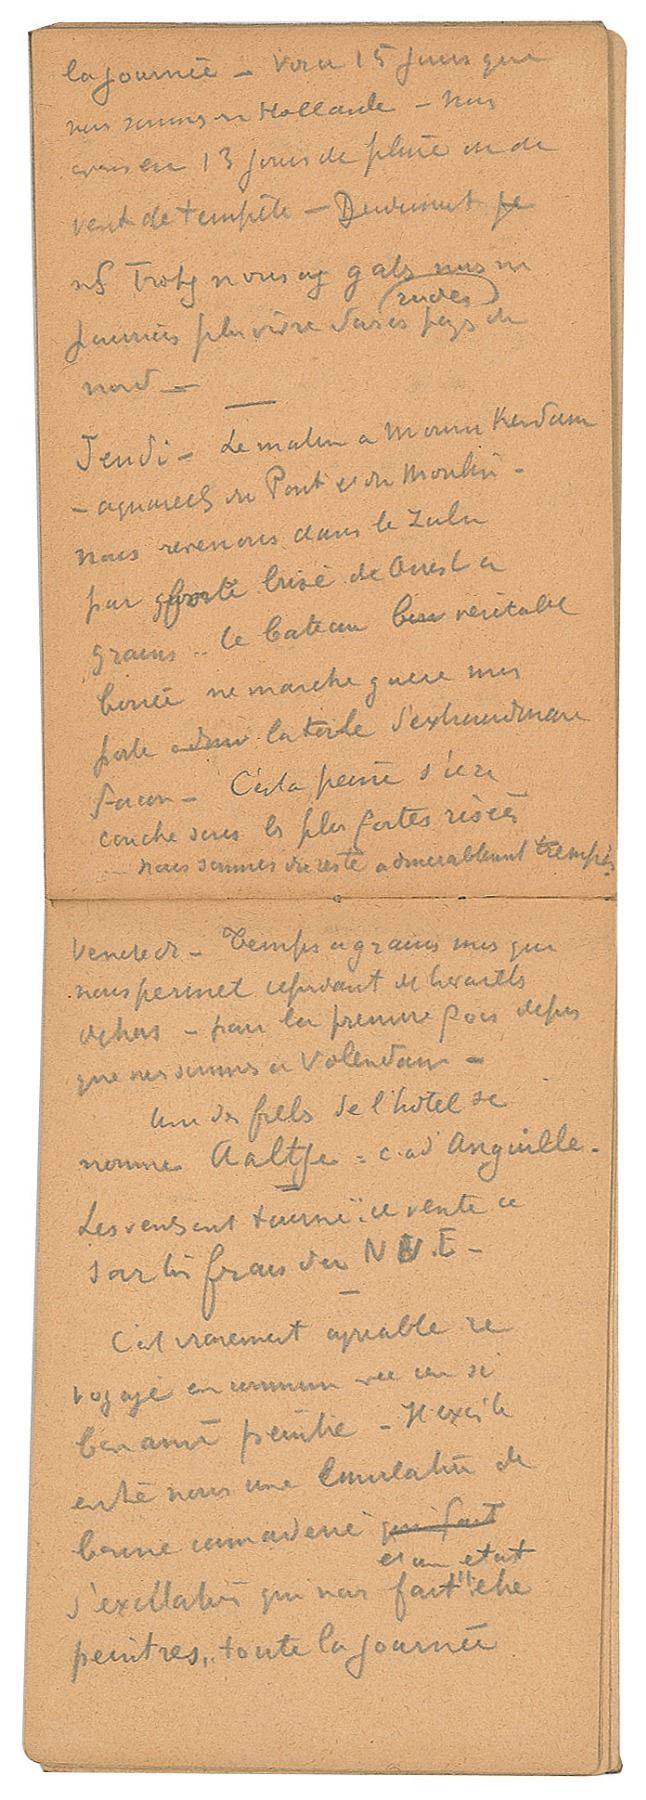 la journée – Voici 15 jours que
nous sommes en Hollande – nous
avons eu 13 jours de pluie ou de
vent de tempête –
journées pluvieuse dans ces rudes pays du
nord –
Jeudi – Le matin a Monnickendam
– aquarelle du Pont et du Moulin –
nous revenons dans le Zulu
par forte brise de Ouest a
grains – le bateau veritable
bouée ne marche guere mais
porte la toile d'extraordinaire
facon – C'est a peine s'il se
couche sous les plus fortes risées
nous sommes du reste admirablement trempés
Vendredi – Temps a grains mais qui
nous permet cependant de travailler
dehors – pour la premiere fois depuis
que nous sommes a Volendam –
Une des filles de l'hotel se
nomme Aaltje = c. a d. Anguille –
Les vents ont tourné il vente ce
soir très frais du N N.E –
C'est vraiment agreable ce
voyage en commun avec un si
bon ami peintre – Il existe
entre nous une émulation de
bonne camaraderie qui fait
et un etat
d'excitation qui nous fait être
peintres, toute la journée